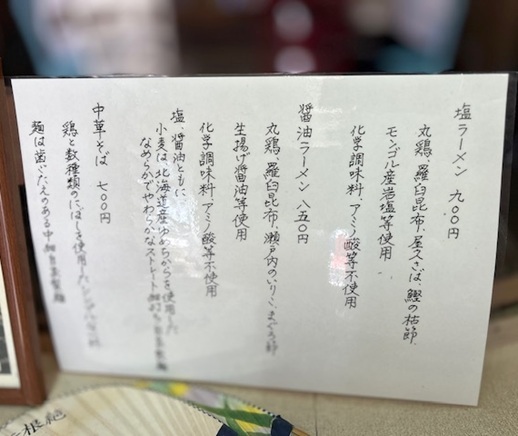 塩ラーメン 九〇〇円
丸鶏、羅臼昆布、屋久さば、鰹の枯節、
モンゴル産岩塩等使用
化学調味料、アミノ酸等不使用
醤油ラーメン 八五〇円
丸鶏、羅臼昆布、瀬戸内のいりこ、まぐろ節
生揚げ醤油等使用
化学調味料、アミノ酸等不使用
塩、醤油ともに
小麦は北海道産ゆめちからを使用した
なめらかでやわらかなストレート細打ち自家製麺
中華そば 七〇〇円
鶏と数種類のにぼしを使用した
麺は歯ごたえのある中細自家製麺
根絶